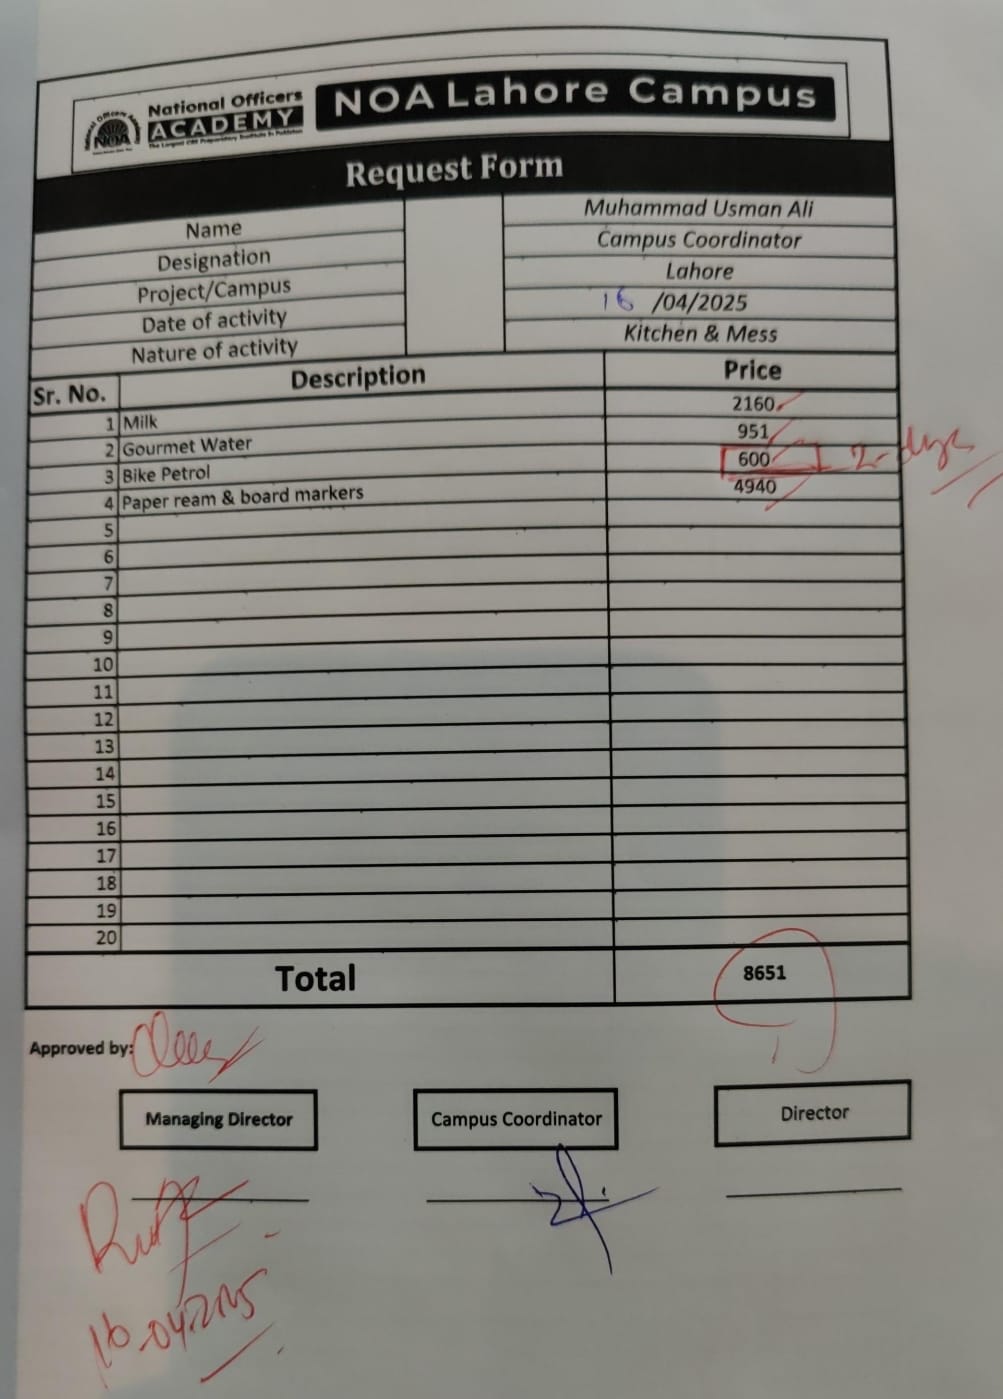 National Officers
ACADEMY
The Largest CSS Preparatory Institute In Pakistan
NOA
NOA Lahore Campus
Request Form
Name Muhammad Usman Ali
Designation Campus Coordinator
Project/Campus Lahore
Date of activity 16 /04/2025
Nature of activity Kitchen & Mess
Sr. No. Description Price
1 Milk 2160
2 Gourmet Water 951
3 Bike Petrol 600 2-days
4 Paper ream & board markers 4940
5
6
7
8
9
10
11
12
13
14
15
16
17
18
19
20
Total 8651
Approved by:
Managing Director Campus Coordinator Director
16-04-2025